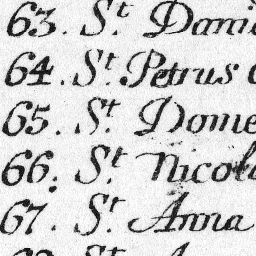 63. S.t Dani
64. S.t Petrus
65. S.t Dome
66. S.t Nicol
67. S.t Anna